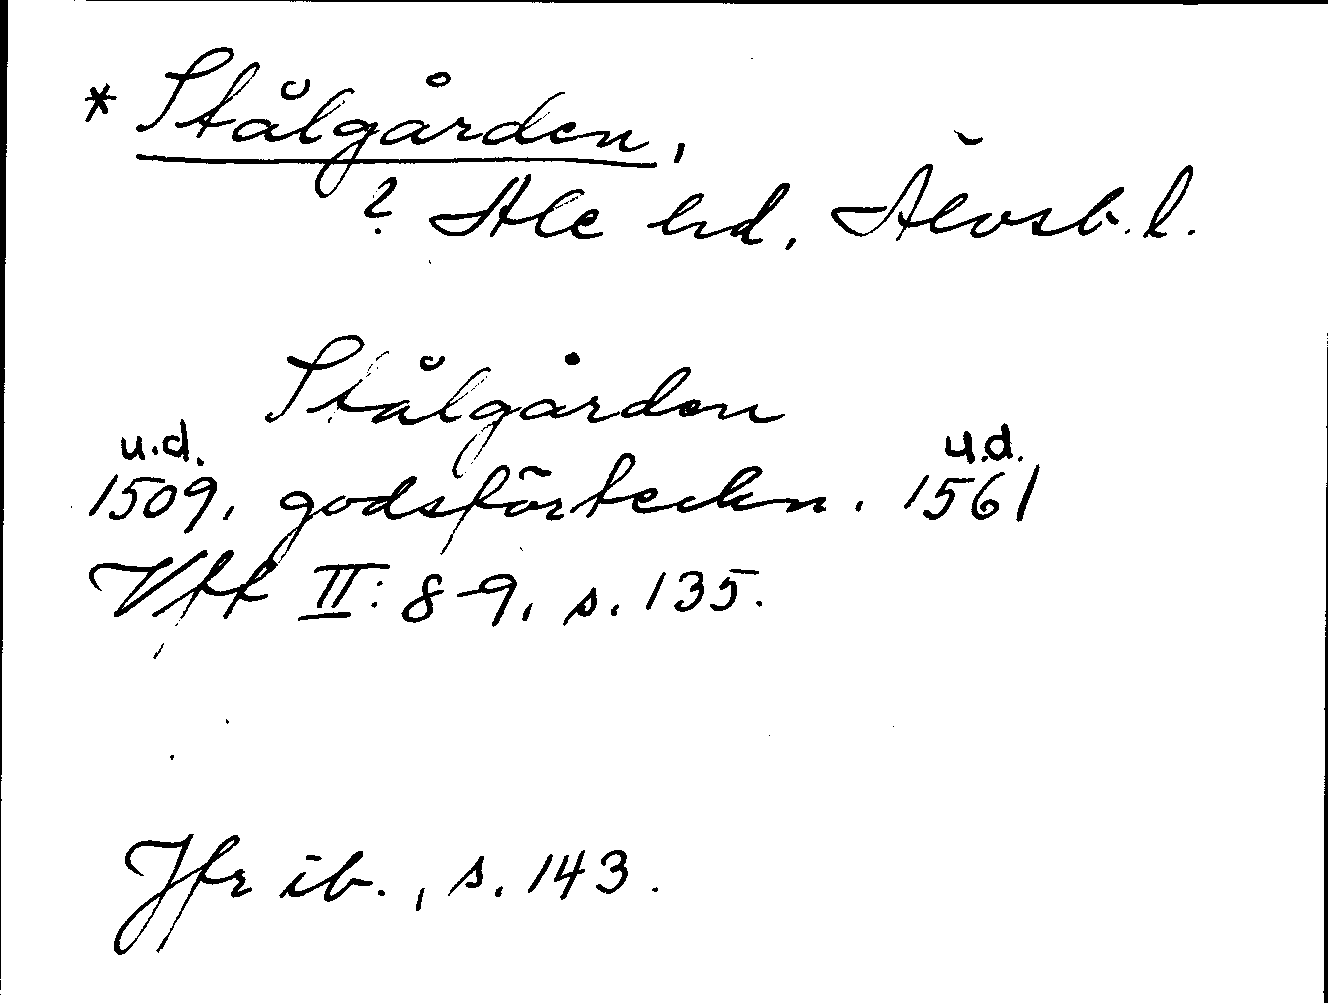 * Stålgården,
? Ale hd, Älvsb. l.
Stålgården
u.d. u.d.
1509, godsförteckn. 1561
Vft II: 8-9, s. 135.
Jfr ib., s. 143.